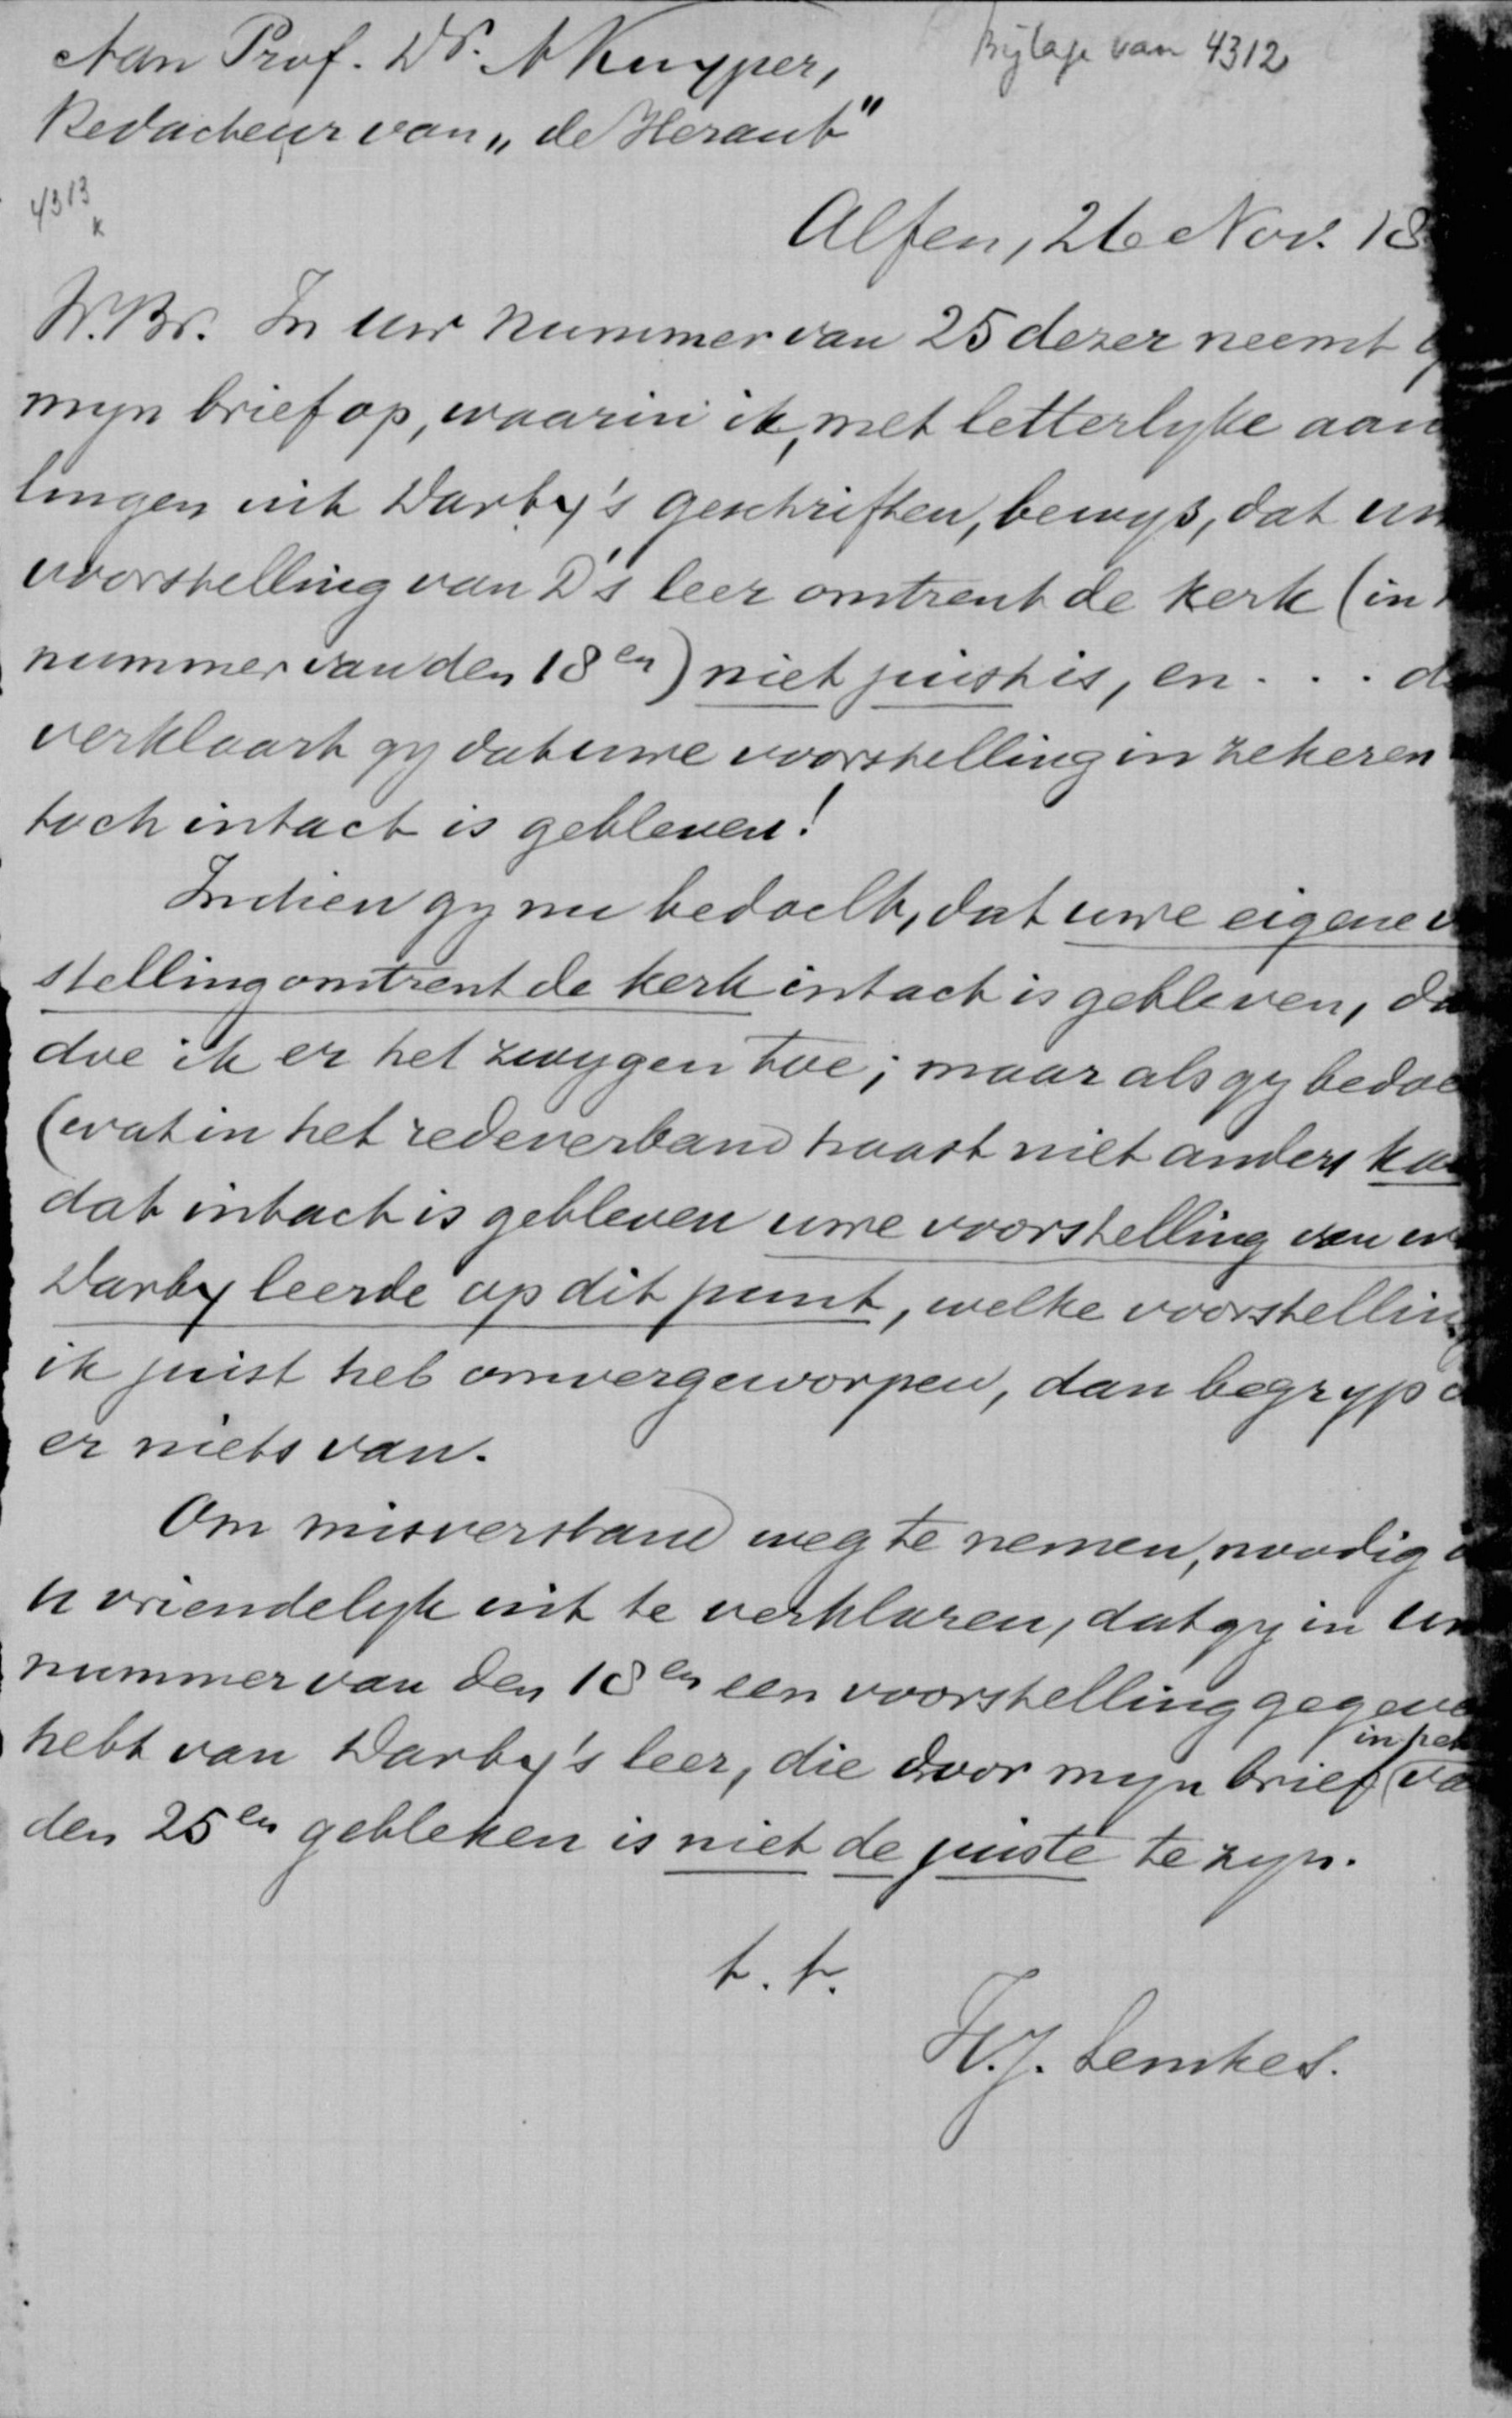 Aan Prof. Dr. A Kuyper,
Bijlage van 4312
Redacteur van „de Heraut"
4313
K
Alfen, 26 Nov. 18
W.Br. In uw nummer van 25 dezer neemt
myn brief op, waarin ik, met letterlyke aan
lingen uit Darby's geschriften, bewys, dat uw
voorstelling van D's leer omtrent de kerk (in
nummer van den 18en) niet juist is, en . . . d
verklaart gy dat uwe voorstelling in zekeren
toch intact is gebleven!
Indien gy nu bedoelt, dat uwe eigene v
stelling omtrent de kerk intact is gebleven, da
doe ik er het zwygen toe; maar als gy bedoe
(wat in het redeverband haast niet anders kan
dat intact is gebleven uwe voorstelling van w
Darby leerde op dit punt, welke voorstelling
ik juist heb omvergeworpen, dan begryp
er niets van.
Om misverstand weg te nemen, noodig
u vriendelyk uit te verklaren, dat gy in uw
nummer van den 18en een voorstelling gegeve
hebt van Darby's leer, die door myn brief (in het va
den 25en gebleken is niet de juiste te zyn.
t. t.
H.J. Lemkes.